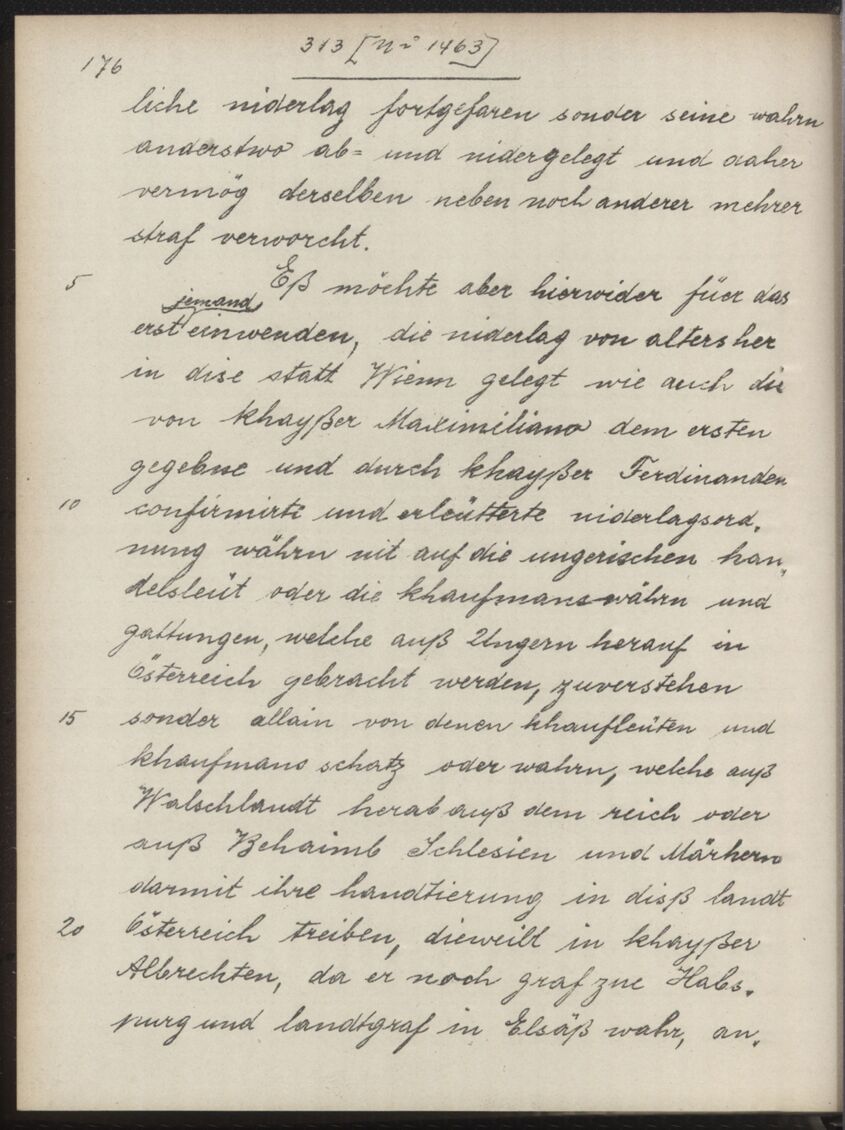 313 [Nr 1463]
176
liche niderlag fortgefaren sonder seine wahrn
anderstwo ab= und nidergelegt und daher
vermög derselben neben noch anderer mehrer
straf verworcht.
5 Eß möchte aber hierwider füer das
jemand
erst einwenden, die niderlag von alters her
in dise statt Wienn gelegt wie auch die
von khayßer Maximiliano dem ersten
gegebne und durch khayßer Ferdinanden
10 confirmirte und erleütterte niderlagsord„
nung währn nit auf die ungerischen han„
delsleüt oder die khaufmanswährn und
gattungen, welche auß Ungern herauf in
Österreich gebracht werden, zuverstehen
15 sonder allain von denen khaufleüten und
khaufmans schatz oder wahrn, welche auß
Walschlandt herab auß dem reich oder
auß Behaimb Schlesien und Märhern
darmit ihre handtierung in disß landt
20 Österreich treiben, dieweill in khayßer
Albrechten, da er noch graf zue Habs„
purg und landtgraf in Elsäß wahr, an„